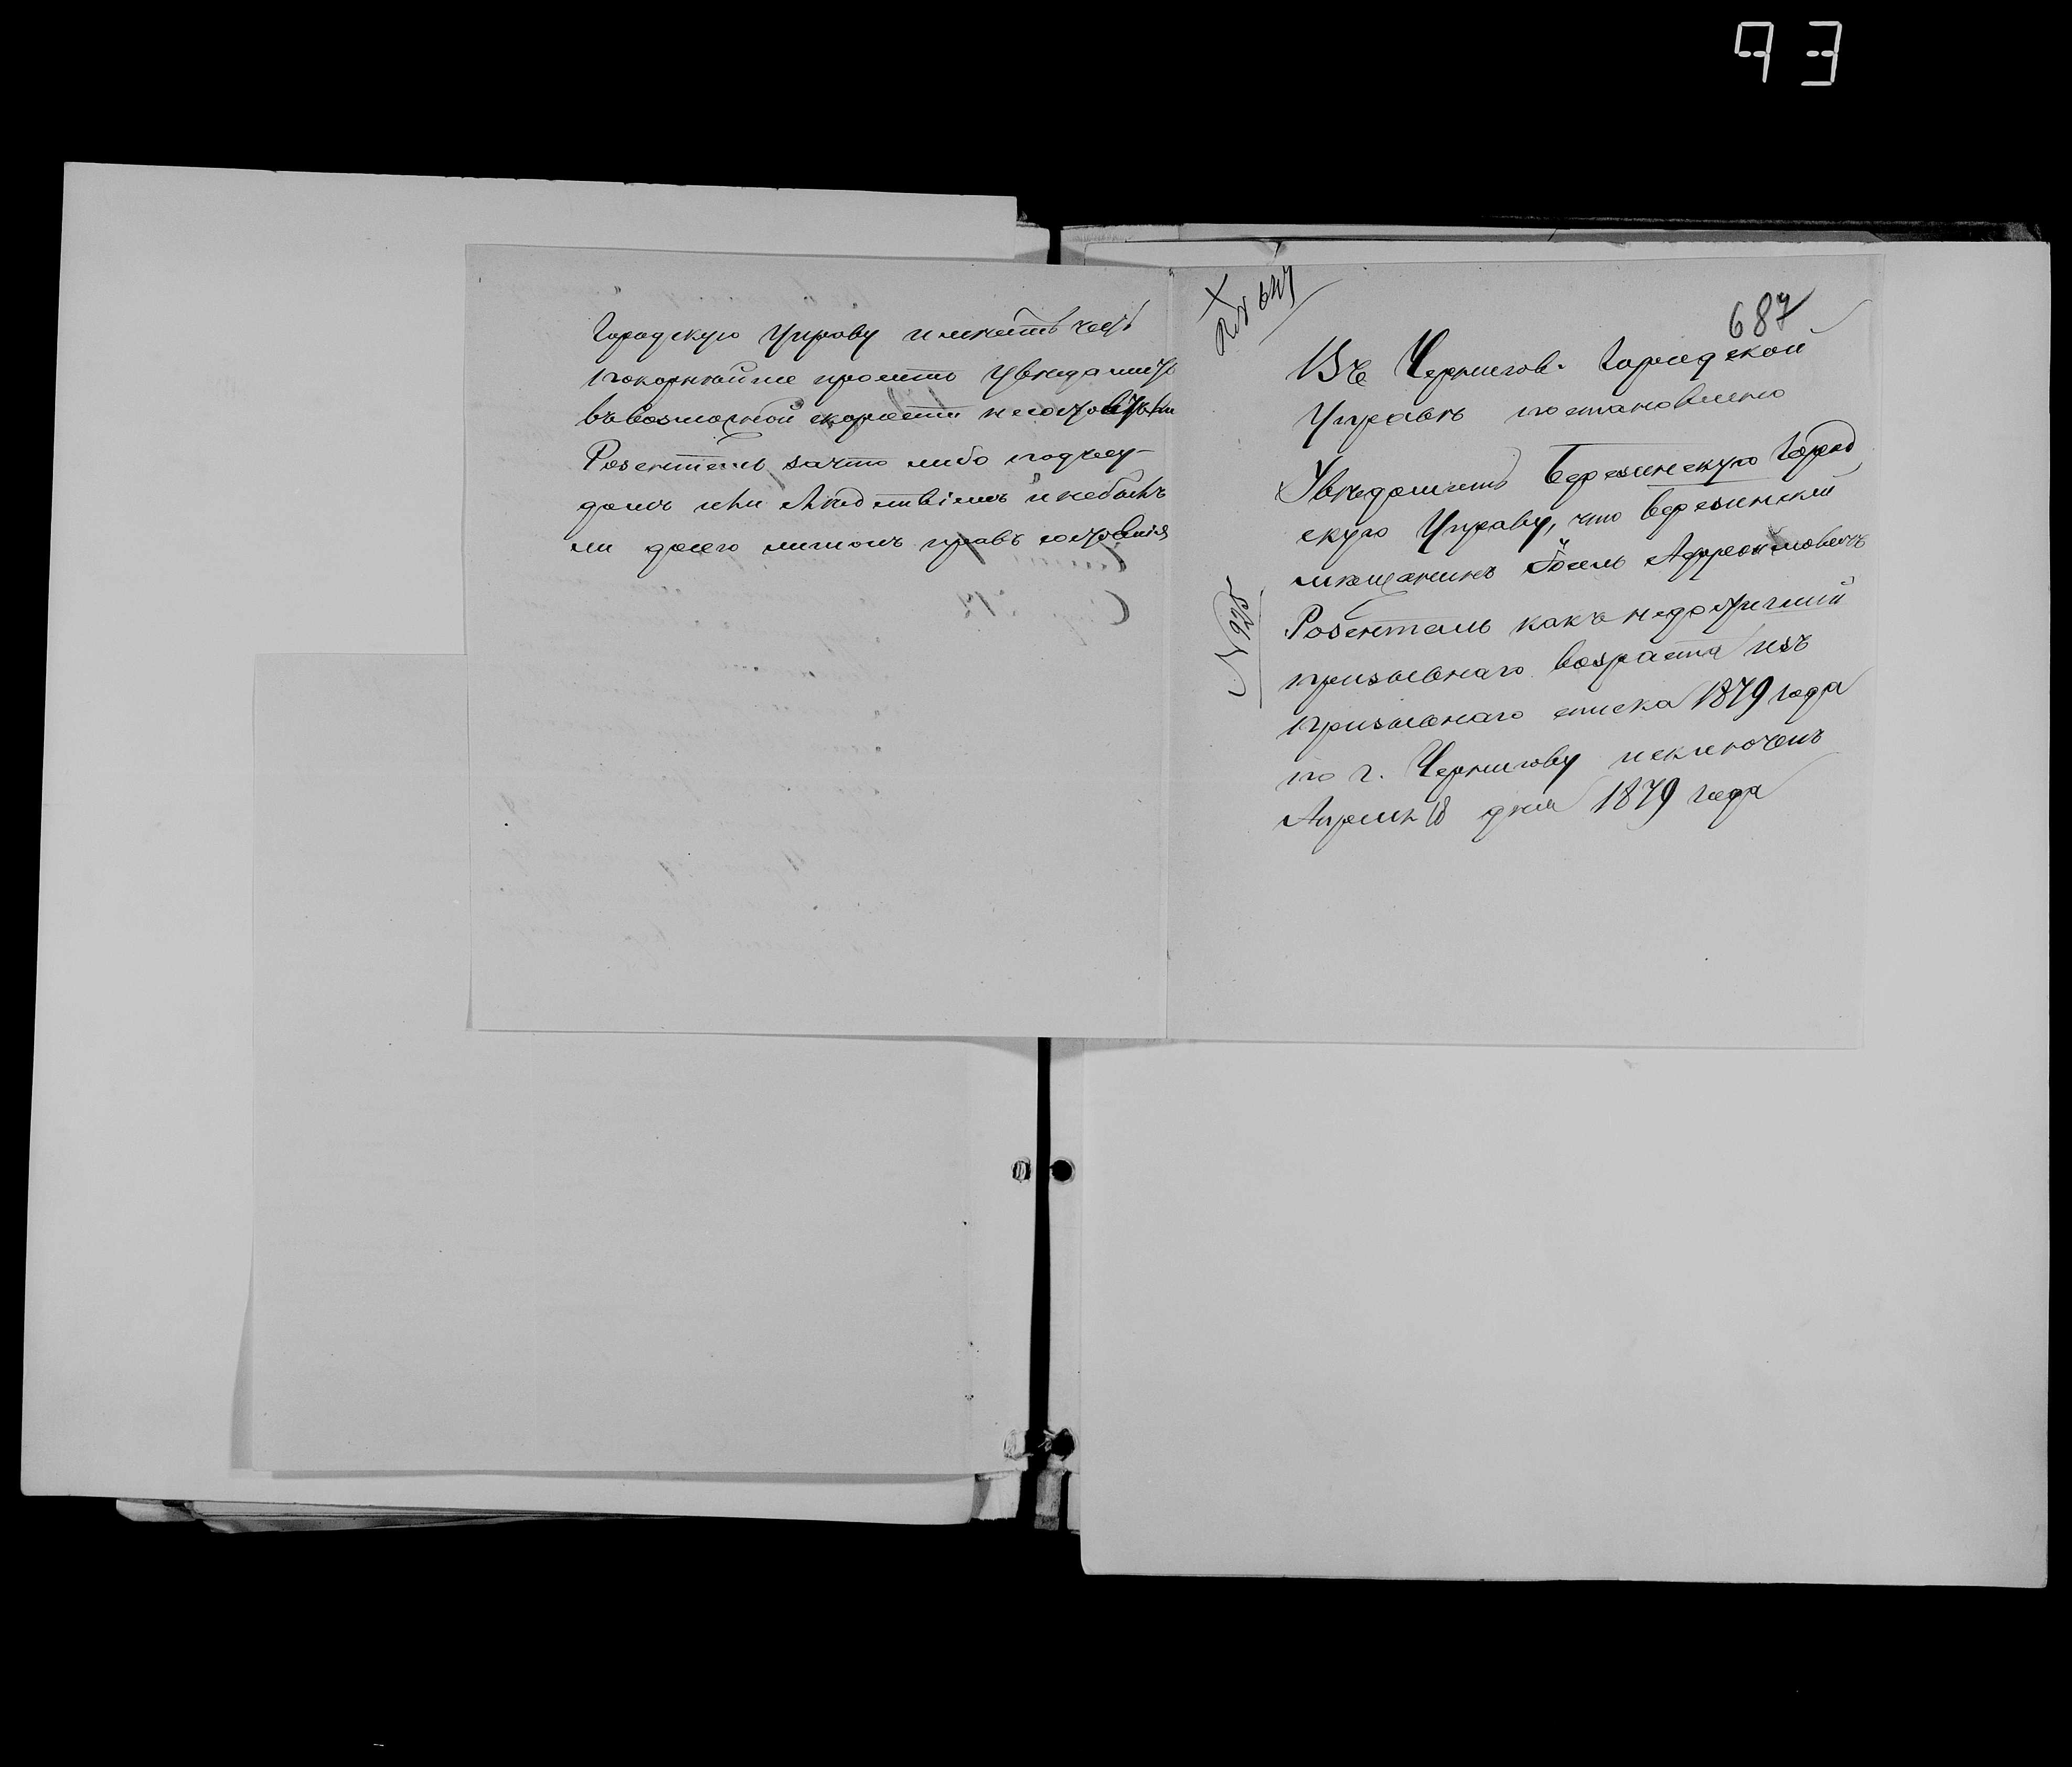 93
Городскую Управу и имѣетъ честь
покорнѣйше просить увѣдомить
въ возможной скорости несостоитъ ли
Розенталь зачто либо подъ су-
домъ или слѣдствіемъ и небылъ
ли досего лишонъ правъ состоянія
687
Въ Чернигов. Городской
Управѣ постановлено
Увѣдомить Березинскую Город
скую Управу, что березинскій
мѣщанинъ
Розенталь какъ недостигшій
призывнаго возраста изъ
призывнаго списка 1879 года
по г. Чернигову исключенъ
Апрѣля 18 дня 1879 года
№ 925